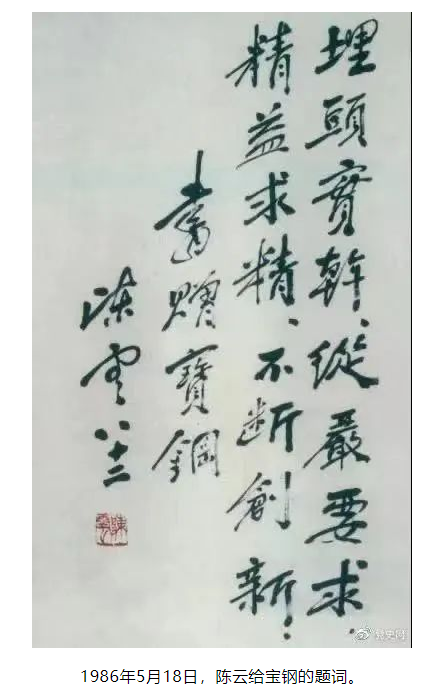 埋頭實幹、從嚴要求、
精益求精、不断創新。
書贈寶鋼
陈云 八十二
陳雲
@党史网
1986年5月18日，陈云给宝钢的题词。